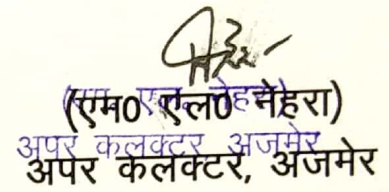 (एम0 एल0 नेहरा)
अपर कलक्टर, अजमेर
अपर कलक्टर, अजमेर